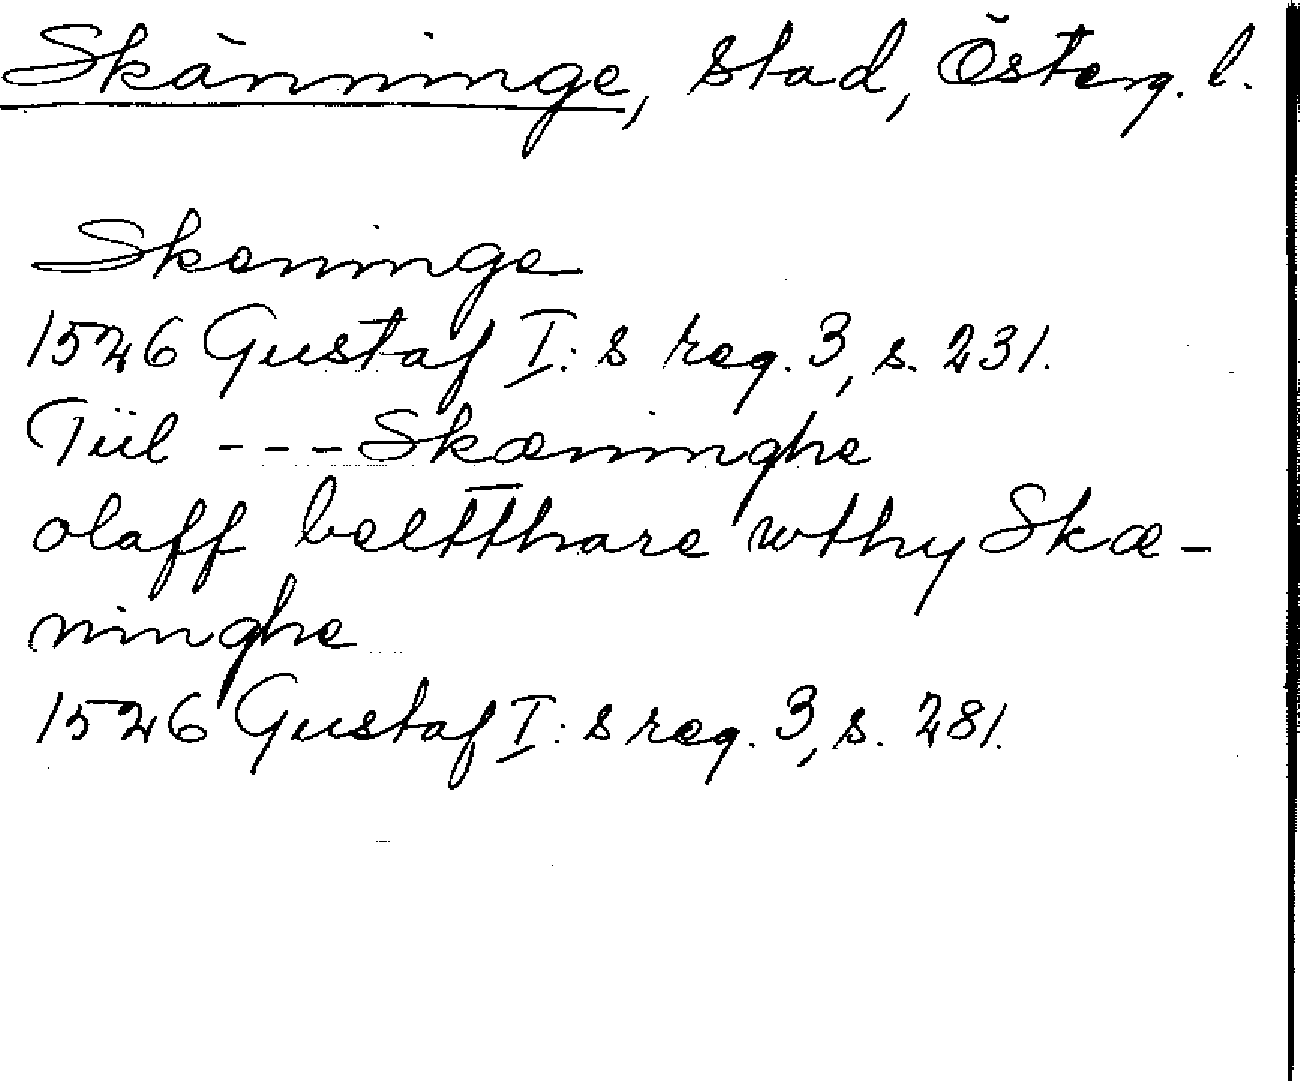 Skänninge, stad, Österg. l.
Skeninge
1526 Gustaf I:s reg. 3, s. 231.
Tiil --- Skæninghe
olaff beltthare wthy Skæ-
ninghe
1526 Gustaf I:s reg. 3, s. 281.